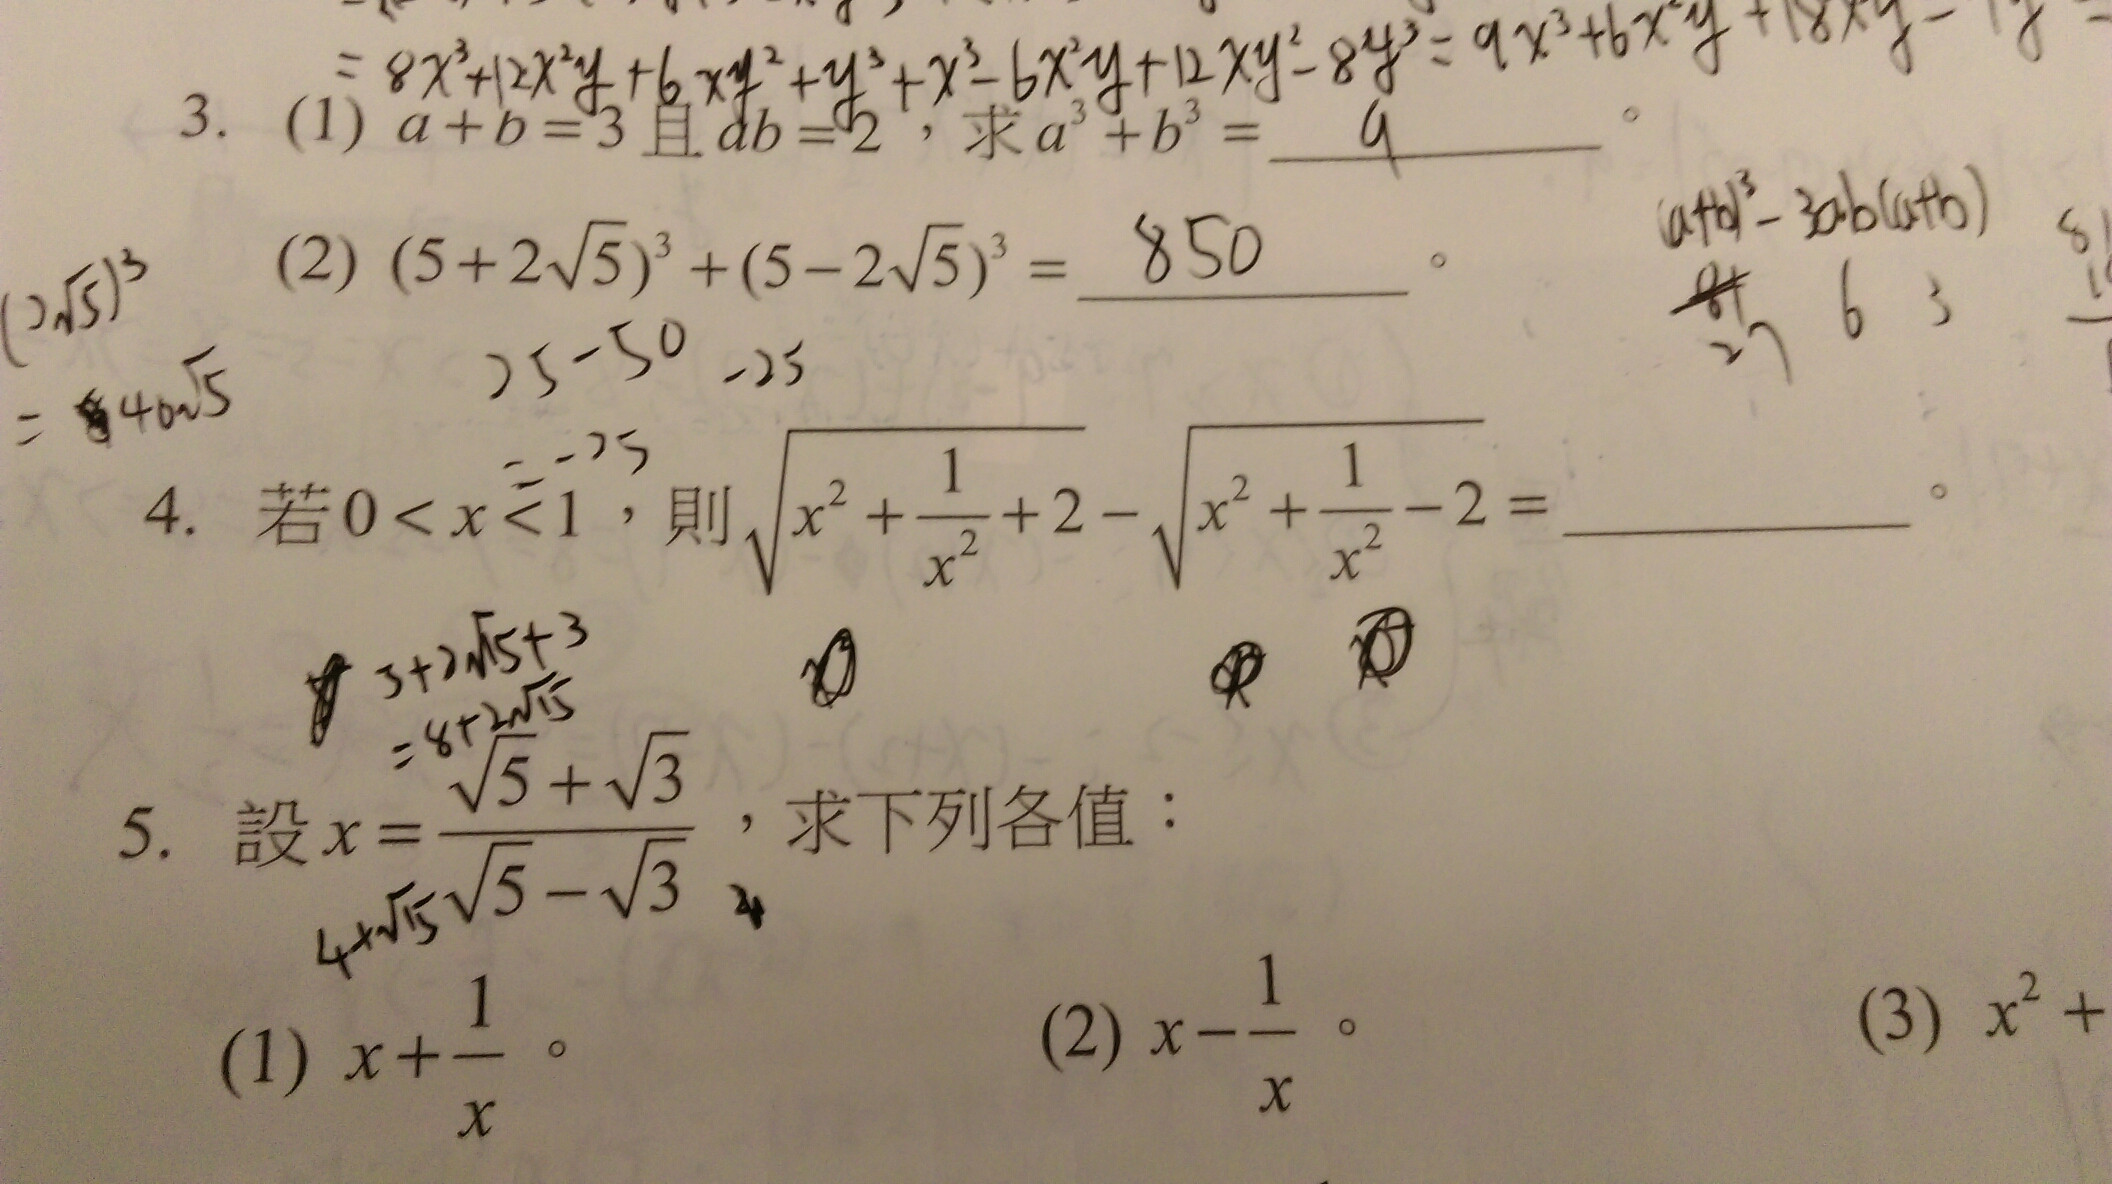 = 8x³+12x²y+6xy²+y³+x³-6x²y+12xy²-8y³=9x³+6x²y+18xy
3. (1) a+b=3且ab=2，求a³+b³= 9 。
(a+b)³-3ab(a+b)
27 6 3
(2) (5+2√5)³+(5-2√5)³= 850 。
(2√5)³
= 40√5
25-50 -25
=-25
4. 若0<x<1，則√(x²+1/x²+2)-√(x²+1/x²-2)= 。
5+2√15+3
=8+2√15
5. 設x=(√5+√3)/(√5-√3)，求下列各值：
4+√15
(1) x+1/x。 (2) x-1/x。 (3) x²+